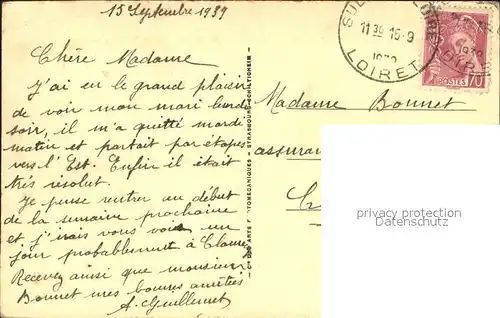 15 Septembre 1939
Chère Madame
J'ai eu le grand plaisir
de voir mon mari lundi
soir, il m'a quitté mardi
matin et partait par étapes
vers l'Est. Enfin il était
très résolut.
Je pense rentrer au début
de la semaine prochaine
et j'irais vous voir un
jour probablement à
Recevez ainsi que monsieur
Bonnet mes bonnes amitiés
A. Guillemet
PHOTOMECANIQUES - STRASBOURG-SCHILTIGHEIM
SUL
11 39 15-9
LOIRET
POSTES
70
Madame Bonnet
assuran
privacy protection
Datenschutz